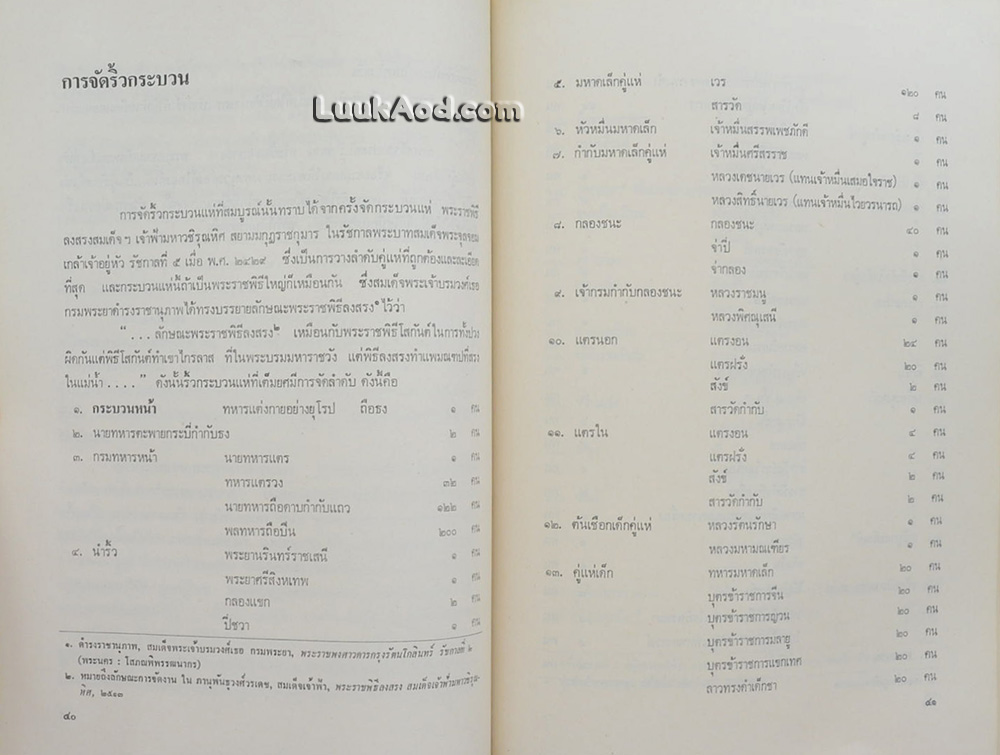 การจัดริ้วกระบวน
LuukAod.com
การจัดริ้วกระบวนแห่ที่สมบูรณ์นั้นทราบได้จากครั้งจัดกระบวนแห่ พระราชพิธี
ลงสรงสมเด็จฯ เจ้าฟ้ามหาวชิรุณหิศ สยามมกุฎราชกุมาร ในรัชกาลพระบาทสมเด็จพระจุลจอม
เกล้าเจ้าอยู่หัว รัชกาลที่ ๕ เมื่อ พ.ศ. ๒๔๒๙ ซึ่งเป็นการวางลำดับคู่แห่ที่ถูกต้องและละเอียด
ที่สุด และกระบวนแห่นี้ถ้าเป็นพระราชพิธีใหญ่ก็เหมือนกัน ซึ่งสมเด็จพระเจ้าบรมวงศ์เธอ
กรมพระยาดำรงราชานุภาพได้ทรงบรรยายลักษณะพระราชพิธีลงสรง๑ ไว้ว่า
“...ลักษณะพระราชพิธีลงสรง๒ เหมือนกับพระราชพิธีโสกันต์ในการทั้งปวง
ผิดกันแต่พิธีโสกันต์ทำเขาไกรลาส ที่ในพระบรมมหาราชวัง แต่พิธีลงสรงทำแพมณฑปที่สรง
ในแม่น้ำ....” ดังนั้นริ้วกระบวนแห่ที่เต็มยศมีการจัดลำดับ ดังนี้คือ
๑. กระบวนหน้า ทหารแต่งกายอย่างยุโรป ถือธง ๑ คน
๒. นายทหารตะพายกระบี่กำกับธง ๒ คน
๓. กรมทหารหน้า นายทหารแตร ๑ คน
ทหารแตรวง ๓๒ คน
นายทหารถือดาบกำกับแถว ๑๒๒ คน
พลทหารถือปืน ๒๐๐ คน
๔. นำริ้ว พระยานรินทร์ราชเสนี ๑ คน
พระยาศรีสิงหเทพ ๑ คน
กลองแขก ๒ คน
ปี่ชวา ๑ คน
๑. ดำรงราชานุภาพ, สมเด็จพระเจ้าบรมวงศ์เธอ กรมพระยา, พระราชพงศาวดารกรุงรัตนโกสินทร์ รัชกาลที่ ๒
(พระนคร : โสภณพิพรรฒนากร)
๒. หมายถึงลักษณะการจัดงาน ใน ภานุพันธุวงศ์วรเดช, สมเด็จเจ้าฟ้า, พระราชพิธีลงสรง สมเด็จเจ้าฟ้ามหาวชิรุณ-
หิศ, ๒๕๑๓
๔๐
๕. มหาดเล็กคู่แห่ เวร ๑๒๐ คน
สารวัด ๘ คน
๖. หัวหมื่นมหาดเล็ก เจ้าหมื่นสรรพเพชภักดี ๑ คน
๗. กำกับมหาดเล็กคู่แห่ เจ้าหมื่นศรีสรราช ๑ คน
หลวงเดชนายเวร (แทนเจ้าหมื่นเสมอใจราช) ๑ คน
หลวงสิทธิ์นายเวร (แทนเจ้าหมื่นไวยวรนารถ) ๑ คน
๘. กลองชนะ กลองชนะ ๔๐ คน
จ่าปี่ ๑ คน
จ่ากลอง ๑ คน
๙. เจ้ากรมกำกับกลองชนะ หลวงราชมนู ๑ คน
หลวงพิศณุเสนี ๑ คน
๑๐. แตรนอก แตรงอน ๒๔ คน
แตรฝรั่ง ๒๐ คน
สังข์ ๒ คน
สารวัดกำกับ ๑ คน
๑๑. แตรใน แตรงอน ๔ คน
แตรฝรั่ง ๔ คน
สังข์ ๒ คน
สารวัดกำกับ ๒ คน
๑๒. ต้นเชือกเด็กคู่แห่ หลวงรัตนรักษา ๑ คน
หลวงมหามณเฑียร ๑ คน
๑๓. คู่แห่เด็ก ทหารมหาดเล็ก ๒๐ คน
บุตรข้าราชการจีน ๒๐ คน
บุตรข้าราชการญวน ๒๐ คน
บุตรข้าราชการมลายู ๒๐ คน
บุตรข้าราชการแขกเทศ ๒๐ คน
ลาวทรงดำเด็กชา
๔๑